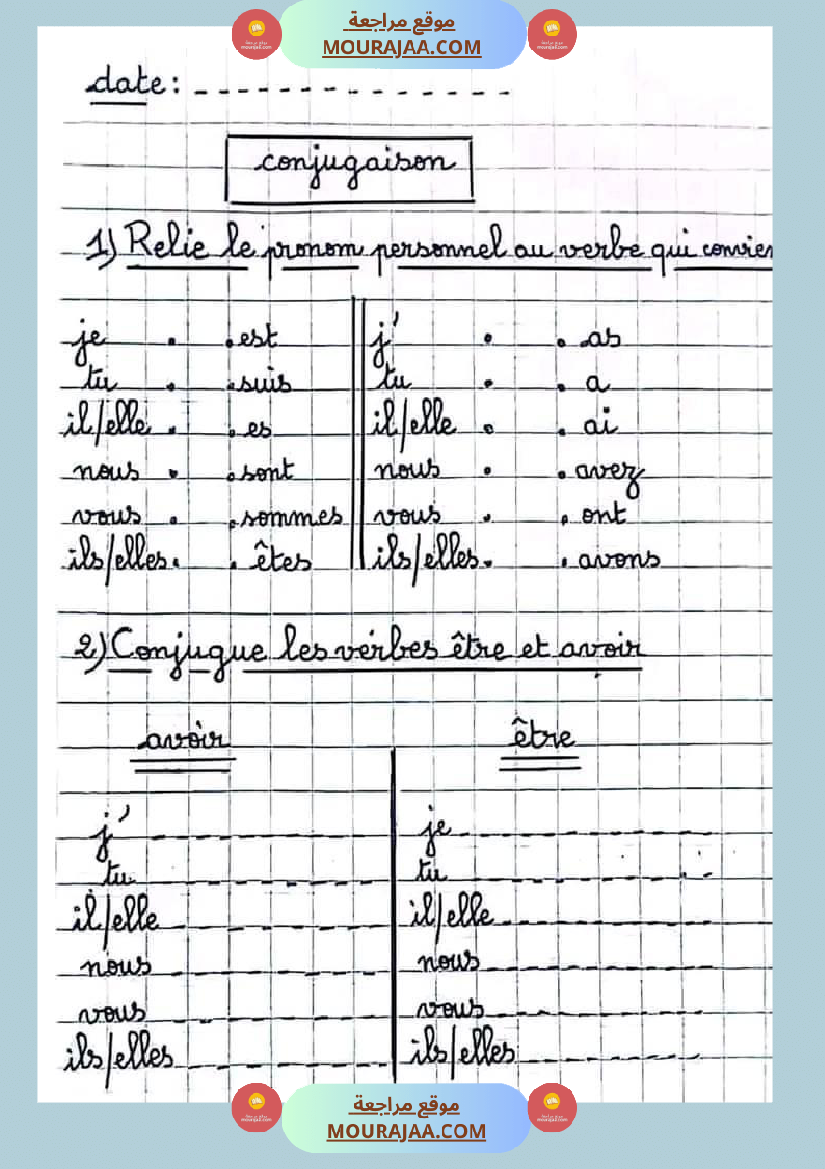 موقع مراجعة
MOURAJAA.COM
date: - - - - - - - - - - - - - - -
conjugaison
1) Relie le pronom personnel au verbe qui convien
je . . est
tu . . suis
il/elle . . es
nous . . sont
vous . . sommes
ils/elles . . êtes
j' . . as
tu . . a
il/elle . . ai
nous . . avez
vous . . ont
ils/elles . . avons
2) Conjugue les verbes être et avoir
avoir
j' - - - - - - - -
tu - - - - - - - -
il/elle - - - - - - - -
nous - - - - - - - -
vous - - - - - - - -
ils/elles - - - - - - - -
être
je - - - - - - - -
tu - - - - - - - -
il/elle - - - - - - - -
nous - - - - - - - -
vous - - - - - - - -
ils/elles - - - - - - - -
موقع مراجعة
MOURAJAA.COM